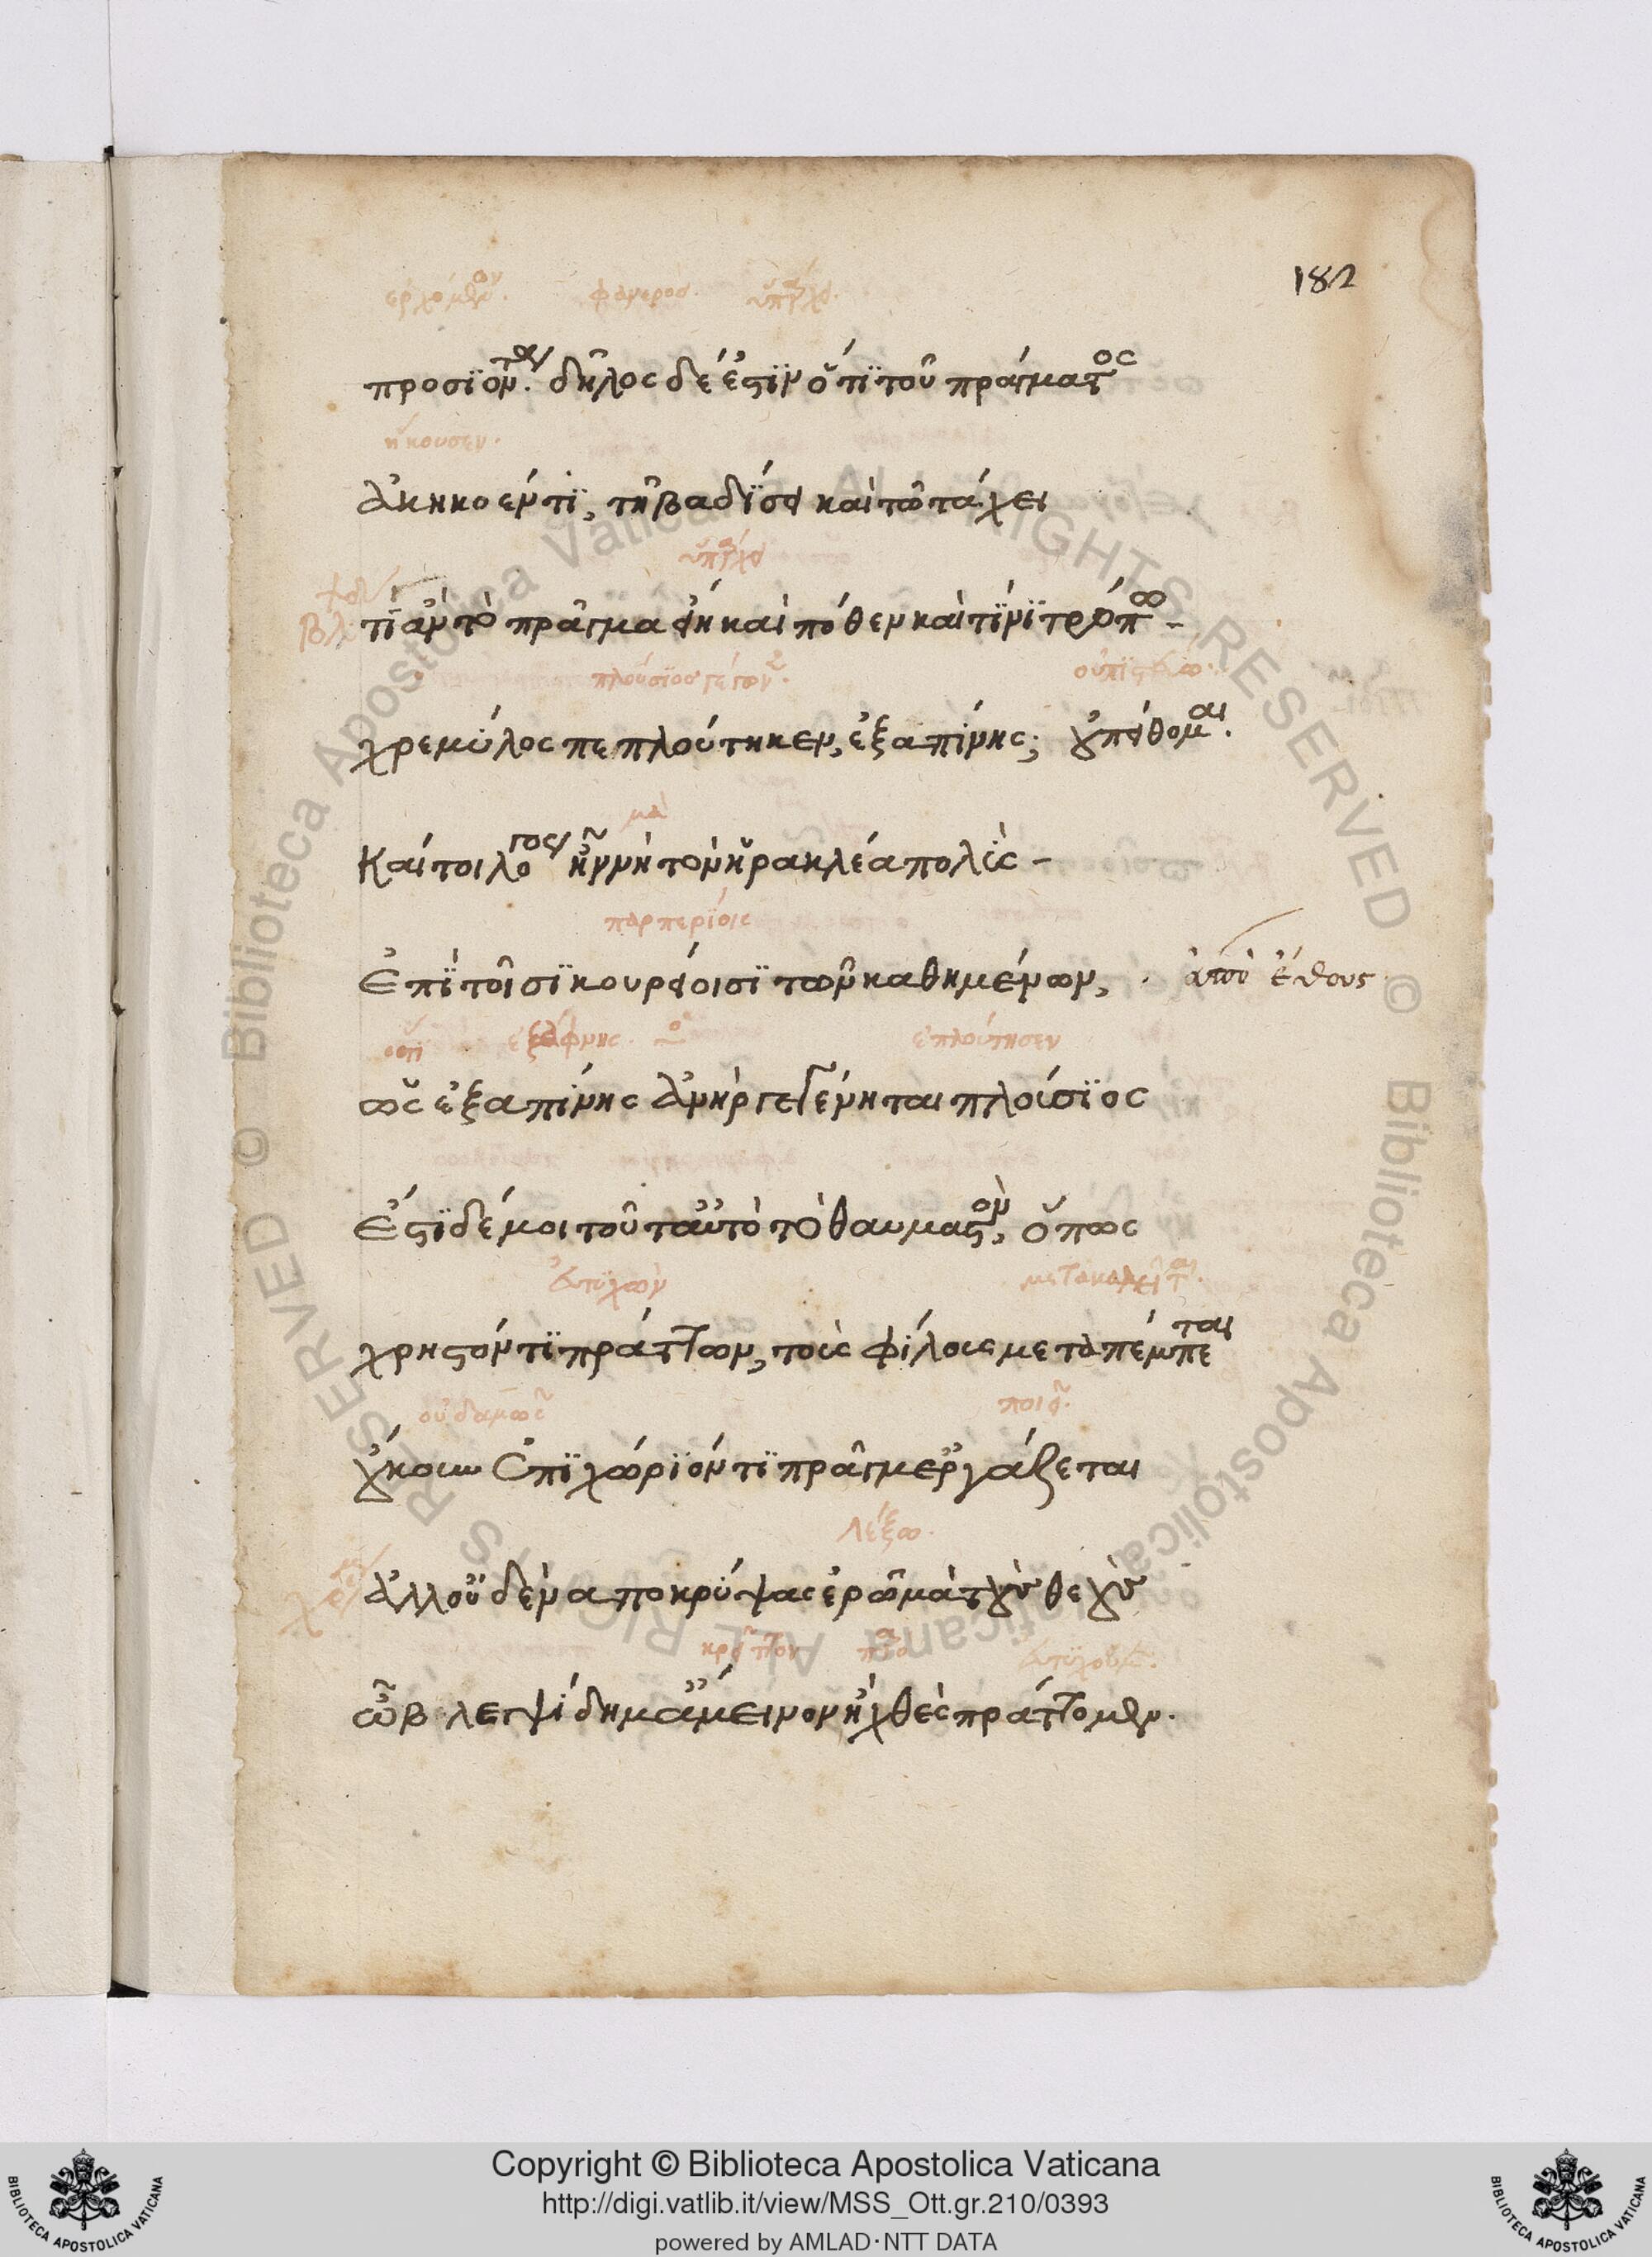 182
ἐρχόμενον. φανερὸσ. ὑπάρχει.
προσϊόντα. δῆλος δέ ἐστϊν ὅτϊ τοῦ πράγματος
ἤκουσεν.
ἀκηκοέν τϊ, τῆ βαδίσει καὶ τῶ τάχει
ὑπάρχει
τί ἂν τὸ πρᾶγμα εἴη καὶ πόθεν καὶ τίνϊ τρόπω -
πλούσϊοσ γέγονε. οὐ πϊστεύω.
χρεμύλος πεπλούτηκεν, ἐξαπίνης; οὐ πείθομαι.
μὰ
Καίτοι λόγος ἦν νὴ τὸν ἡρακλέα πολὺς -
Ἐπῒ τοῖσϊ κουρείοισϊ τῶν καθημένων, ἀπὸ ἔθους
ὅτι ἐξάφνης. ὁ ἐπλούτησεν
ὡς ἐξαπίνης ἀνὴρ γεγένηται πλούσϊος
Ἔστϊ δέ μοι τοῦτ' αὐτὸ τὸ θαυμαστὸν, ὅπως
εὐτυχῶν μετακαλεῖται.
χρηστόν τϊ πράττων, τοὺς φίλους μεταπέμπεται
οὐδαμῶς ποιεῖ.
οὔκουν ἐπϊχώρϊόν τϊ πρᾶγμ' ἐργάζεται
λέξω.
ἀλλ' οὐδὲν ἀποκρύψας ἐρῶ μὰ τοὺς θεοὺς
κρεῖττον
ὦ βλεψίδημ' ἄμεινον ἢ χθὲς πράττομεν.
Copyright © Biblioteca Apostolica Vaticana
http://digi.vatlib.it/view/MSS_Ott.gr.210/0393
powered by AMLAD·NTT DATA